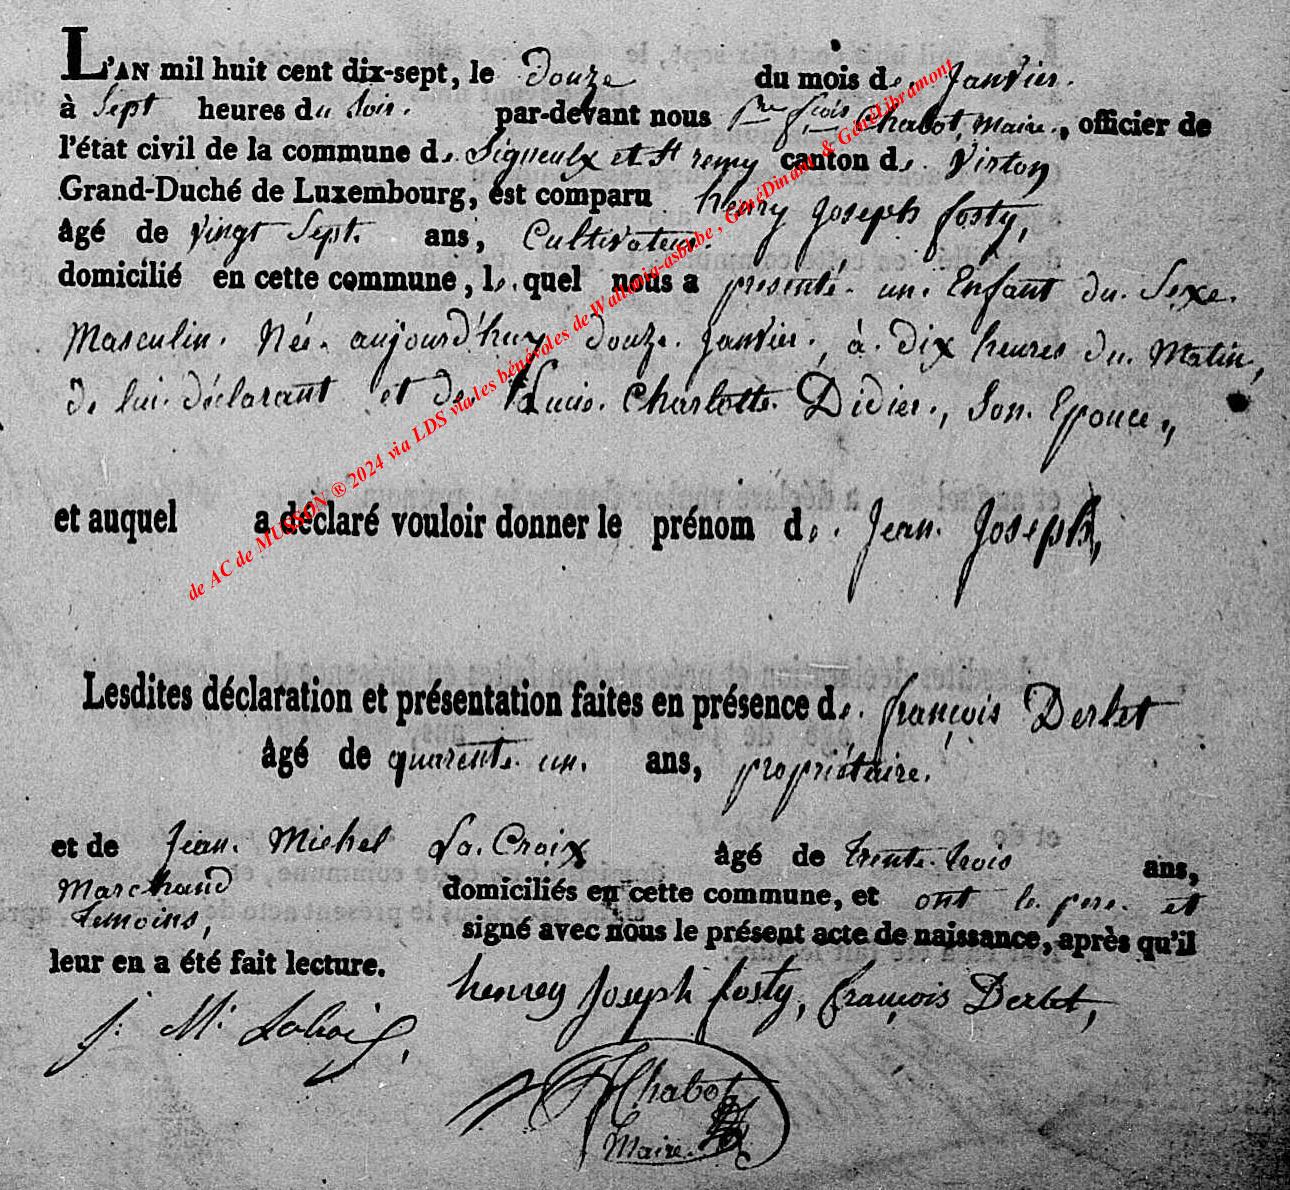 L'AN mil huit cent dix-sept, le douze du mois de Janvier.
à Sept heures du Soir. par-devant nous Pre fçois Chabot, Maire, officier de
l'état civil de la commune de Signeulx et St remy canton de Virton
Grand-Duché de Luxembourg, est comparu henry Joseph fosty,
âgé de Vingt Sept ans, Cultivateur.
domicilié en cette commune, le quel nous a presenté un Enfant du Sexe
Masculin. Née aujourd'huy douze Janvier, à dix heures du Matin,
de lui déclarant et de Lucie Charlotte Didier, Son Epouce,
et auquel a déclaré vouloir donner le prénom de Jean Joseph,
Lesdites déclaration et présentation faites en présence de françois Derlet
âgé de quarente un ans, propriétaire.
et de Jean Michel La Croix âgé de trente trois ans,
Marchand domiciliés en cette commune, et ont le pere et
temoins, signé avec nous le présent acte de naissance, après qu'il
leur en a été fait lecture.
henrey Joseph fosty, françois Derlet,
J. M.
Chabot
Maire.
de AC de MUSSON ® 2024 via LDS via les bénévoles de Wallonia-asbl.be, GénéDinant & GénéLibramont